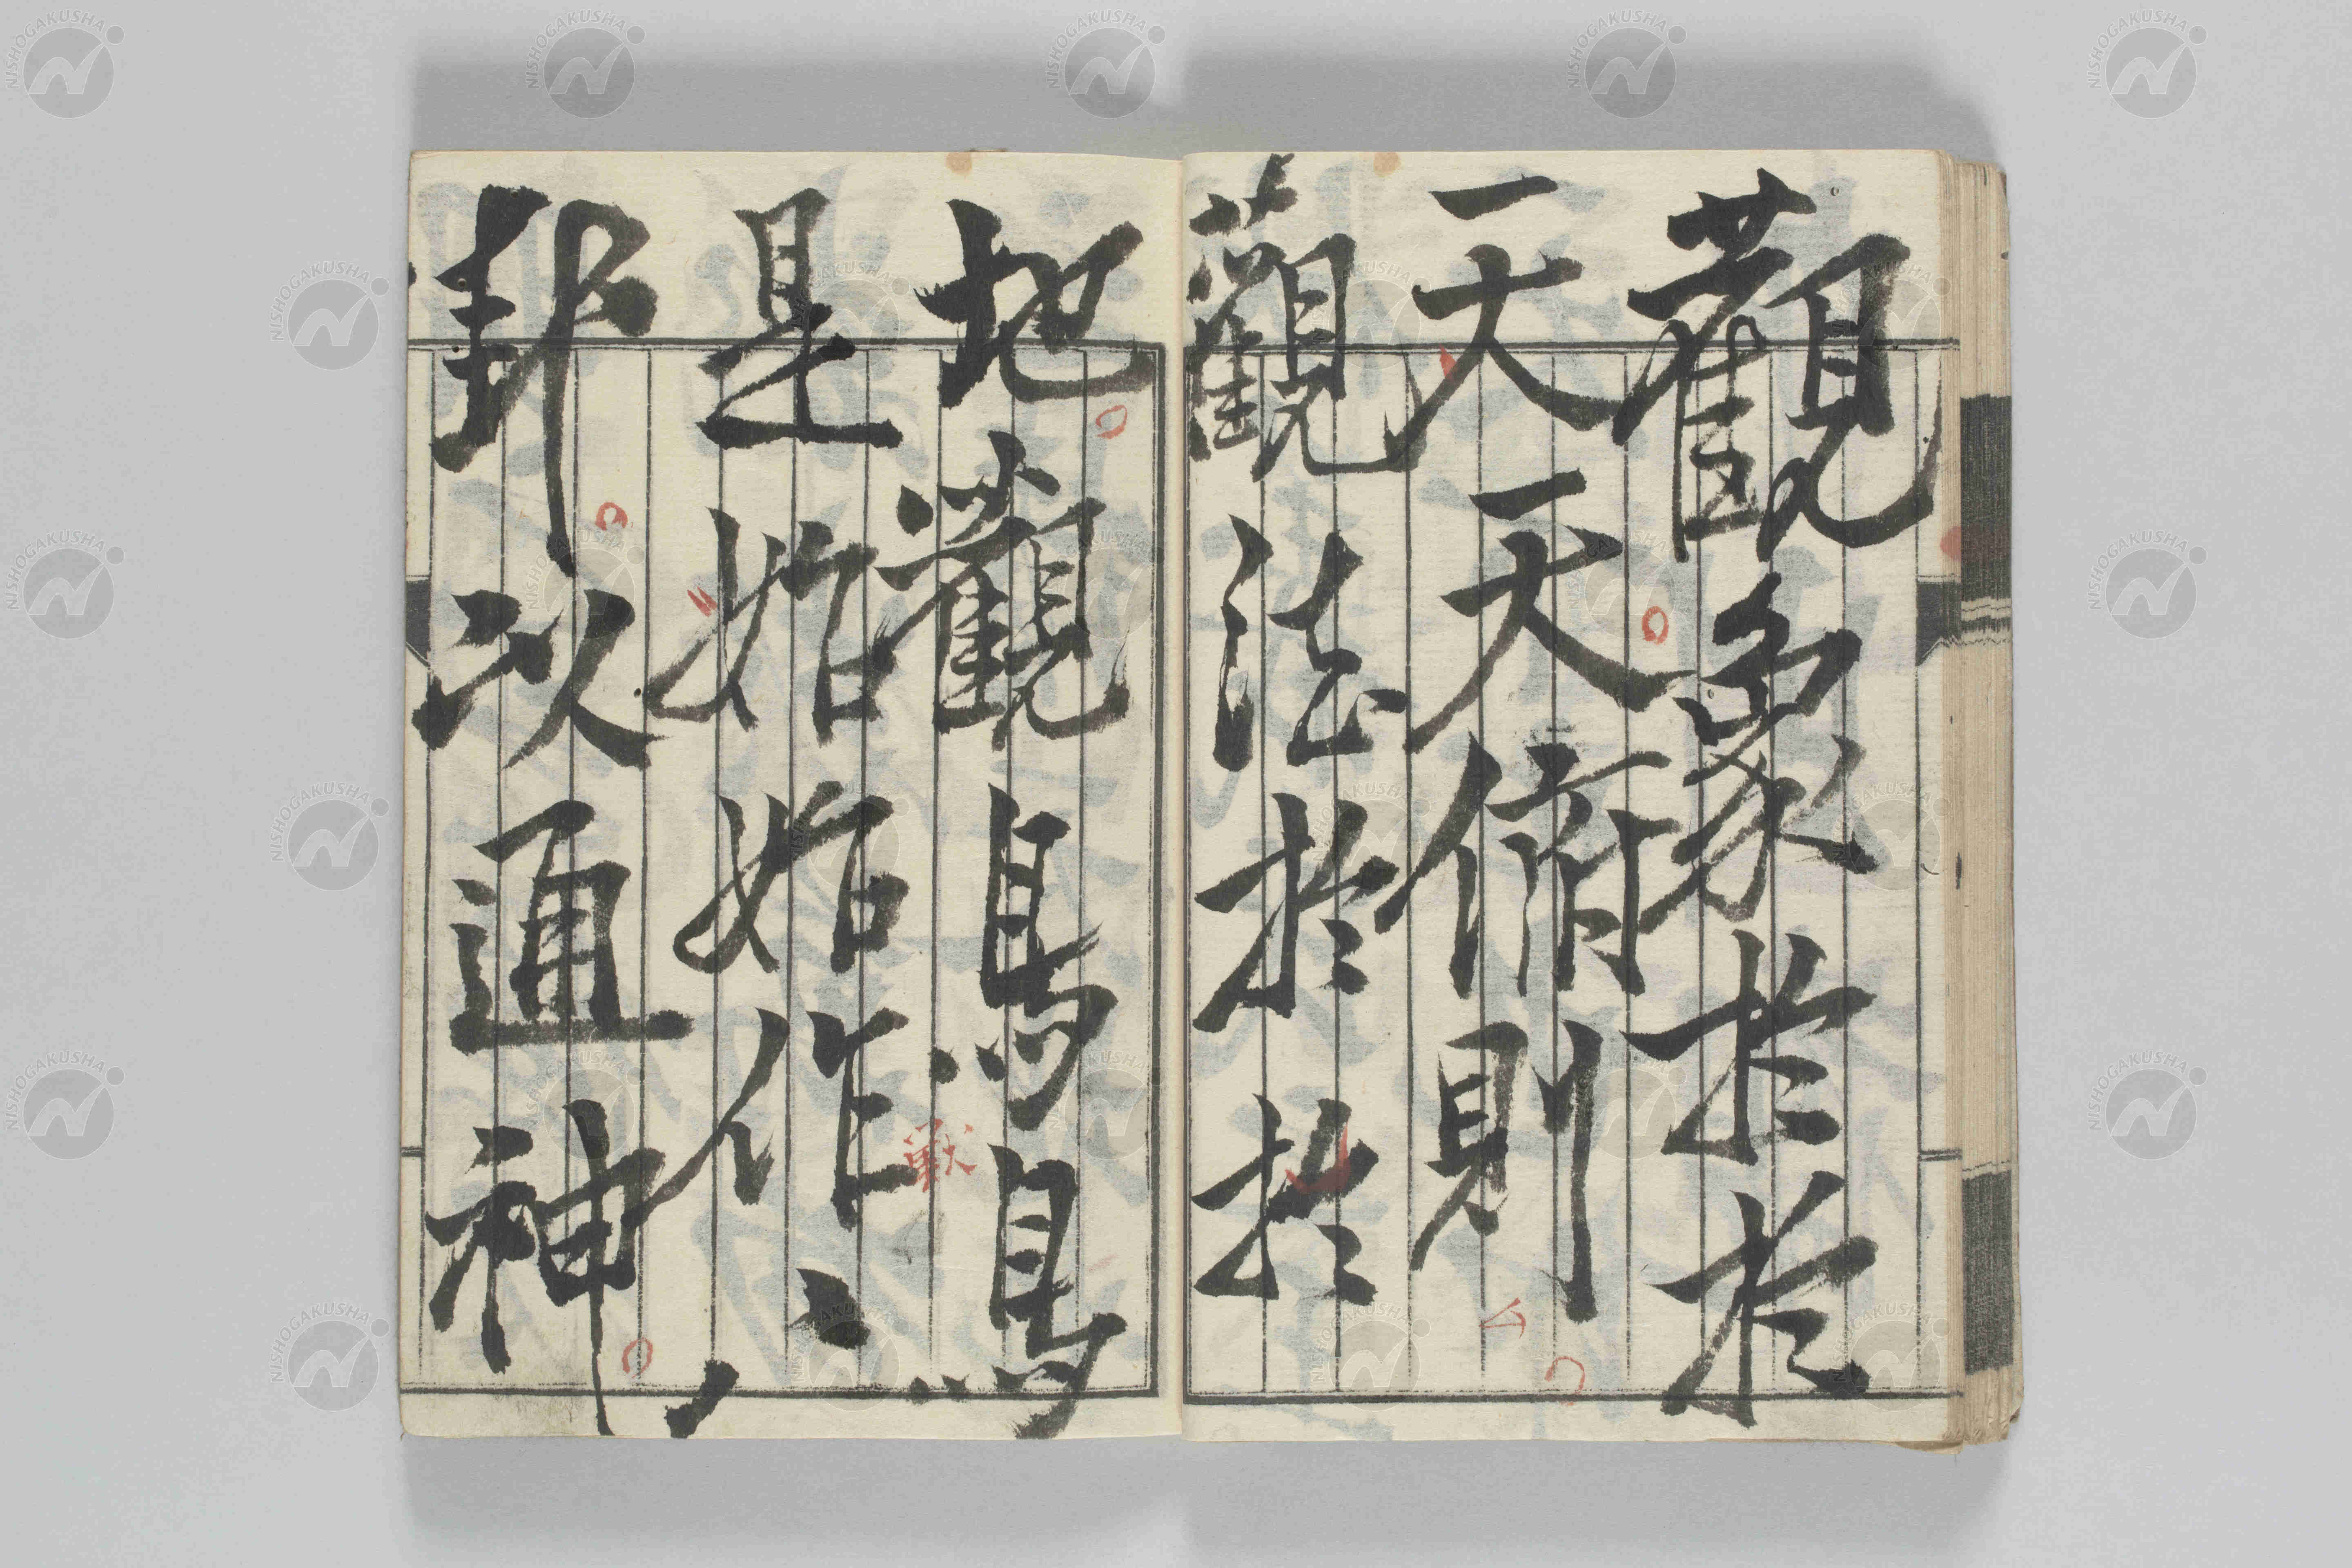 觀象於於
天天俯則
觀法於於
地觀鳥鳥
是始始作
卦以通神
獸
NISHOGAKUSHA